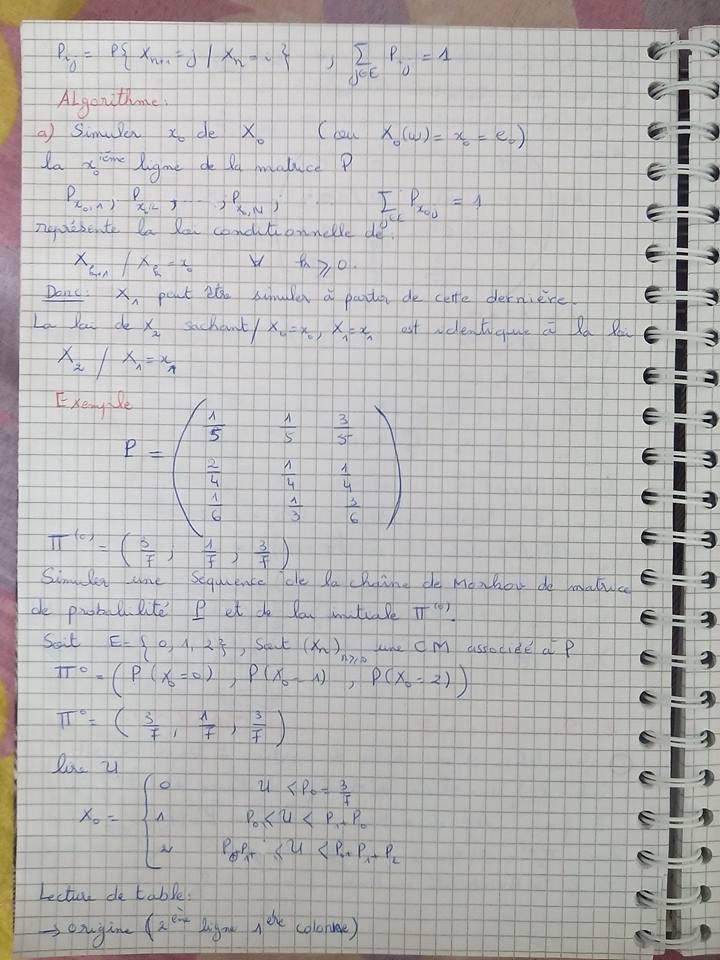 P_ij = P{ X_n+1 = j / X_n = i } , ∑_j∈E P_ij = 1
ALgorithme:
a) Simuler x_0 de X_0 (ou X_0(ω) = x_0 = e_0)
la x_0^ième ligne de la matrice P
P_x_0,1 , P_x_0,2 , ..... , P_x_0,N ; ∑_j∈E P_x_0,j = 1
représente la loi conditionnelle de:
X_k+1 / X_k = x_0 ∀ k ⩾ 0.
Donc: X_1 peut être simuler à partir de cette dernière.
La loi de X_2 sachant / X_0 = x_0, X_1 = x_1 est identique à la loi
X_2 / X_1 = x_1
Exemple
P = ( 1/5 1/5 3/5
2/4 1/4 1/4
1/6 1/3 3/6 )
Π^(0) = ( 3/7 ; 1/7 ; 3/7 )
Simuler une séquence de la chaîne de Markov de matrice
de probabilité P et de loi initiale Π^(0).
Soit E = { 0, 1, 2 } , Soit (X_n)_n⩾0 une CM associé à P
Π^0 = ( P(X_0 = 0) , P(X_0 = 1) , P(X_0 = 2) )
Π^0 = ( 3/7 , 1/7 , 3/7 )
lire U
X_0 = { 0 U < P_0 = 3/7
1 P_0 ⩽ U < P_1 + P_0
2 P_0 + P_1 ⩽ U < P_0 + P_1 + P_2
Lecture de table:
→ origine (2^ème ligne 1^ère colonne)